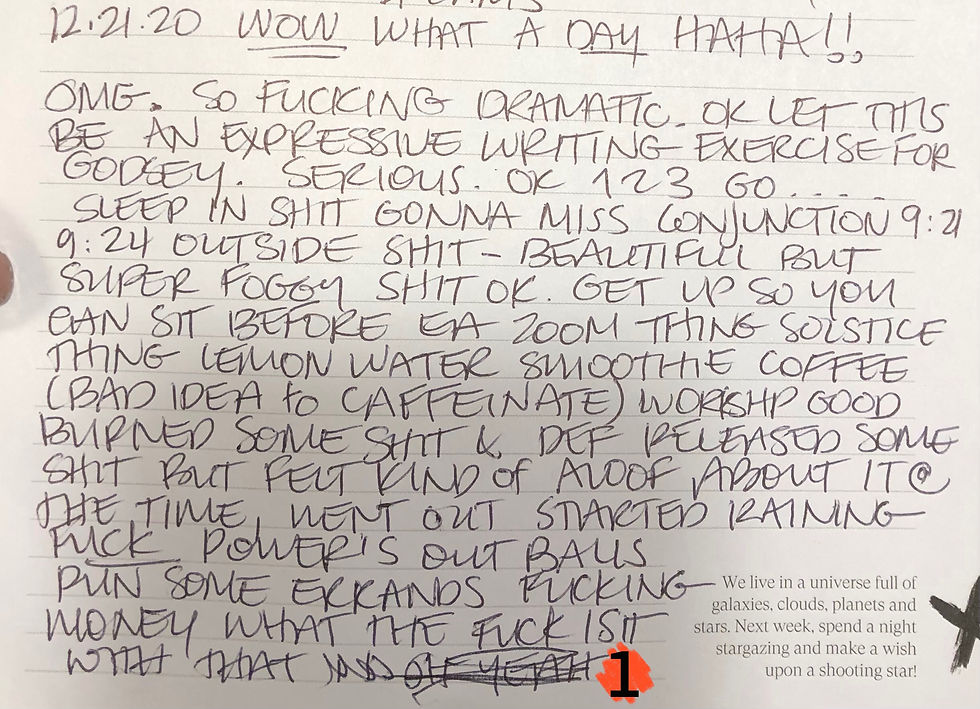 12.21.20 WOW WHAT A DAY HAHA!!
OMG. SO FUCKING DRAMATIC. OK LET THIS
BE AN EXPRESSIVE WRITING EXERCISE FOR
GODSEY. SERIOUS. OK 1 2 3 GO....
SLEEP IN SHIT GONNA MISS CONJUNCTION 9:21
9:24 OUTSIDE SHIT - BEAUTIFUL BUT
SUPER FOGGY SHIT OK. GET UP SO YOU
CAN SIT BEFORE EA ZOOM THING SOLSTICE
THING LEMON WATER SMOOTHIE COFFEE
(BAD IDEA to CAFFEINATE) WORKSHP GOOD
BURNED SOME SHIT & DEF RELEASED SOME
SHIT BUT FELT KIND of ALOOF ABOUT IT @
THE TIME, WENT OUT STARTED RAINING
FUCK POWER'S OUT BALLS
RUN SOME ERRANDS FUCKING
MONEY WHAT THE FUCK IS IT
WITH THAT AND OH YEAH 1
We live in a universe full of
galaxies, clouds, planets and
stars. Next week, spend a night
stargazing and make a wish
upon a shooting star!